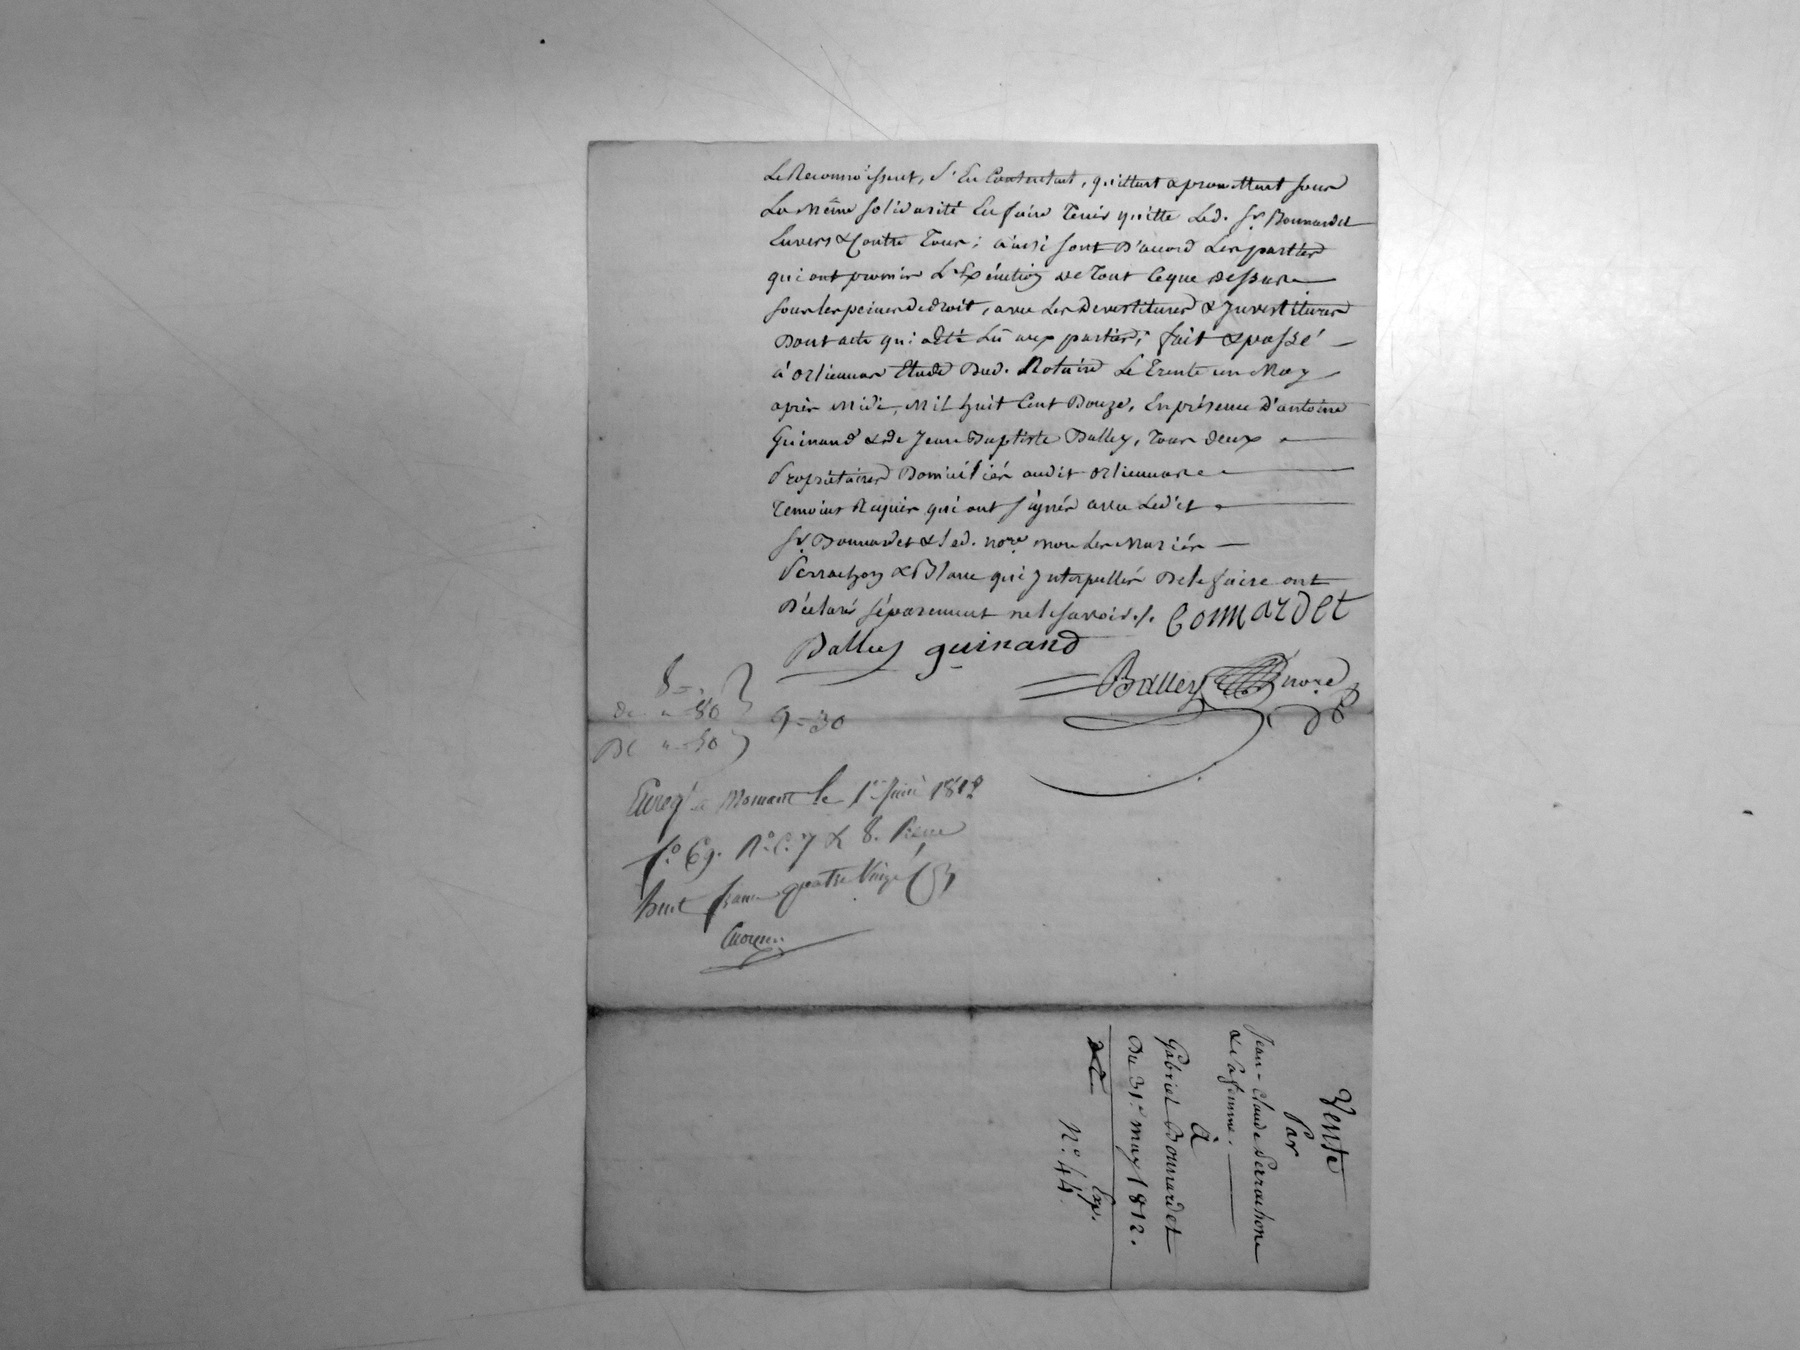 Le Reconnoissent, s'En Contentent, quittent & promettent sous
La même solidarité En faire Tenir quitte Led. Sr. Bonnardet
Envers & Contre Tous; ainsi sont D'accord Les parties
qui ont promis L'Exécution de Tout Ceque Dessus
sous les peines de droit, avec Les Devestitures & Investitures
Dont acte qui a été Lû aux parties; fait & passé
à Orlienas Etude Dud. Notaire Le Trente un May
après Midi, Mil huit Cent Douze, En présence D'antoine
Guinand & de Jean Baptiste Balley, Tous deux
Propriétaires Domiciliés audit Orlienas
Temoins Requis qui ont signés avec Ledit
Sr. Bonnardet & led. nore. non Les Mariés
Perrachon & Blanc qui Interpellés De le faire ont
Déclaré séparement ne le savoir ./. Bonnardet
Balley guinand
Balley nore
8 = "
De " = 80
De " = 50
9 = 30
Enregé. à Mornant le 1er Juin 1812
fo. 69. Ro. C. 7 & 8. Reçu
huit francs quatre Vingt
Vente
Par
Jean-Claude Perrachon
& sa femme.
à
Gabriel Bonnardet
Du 31e. may 1812.
Exp.
No. 44.